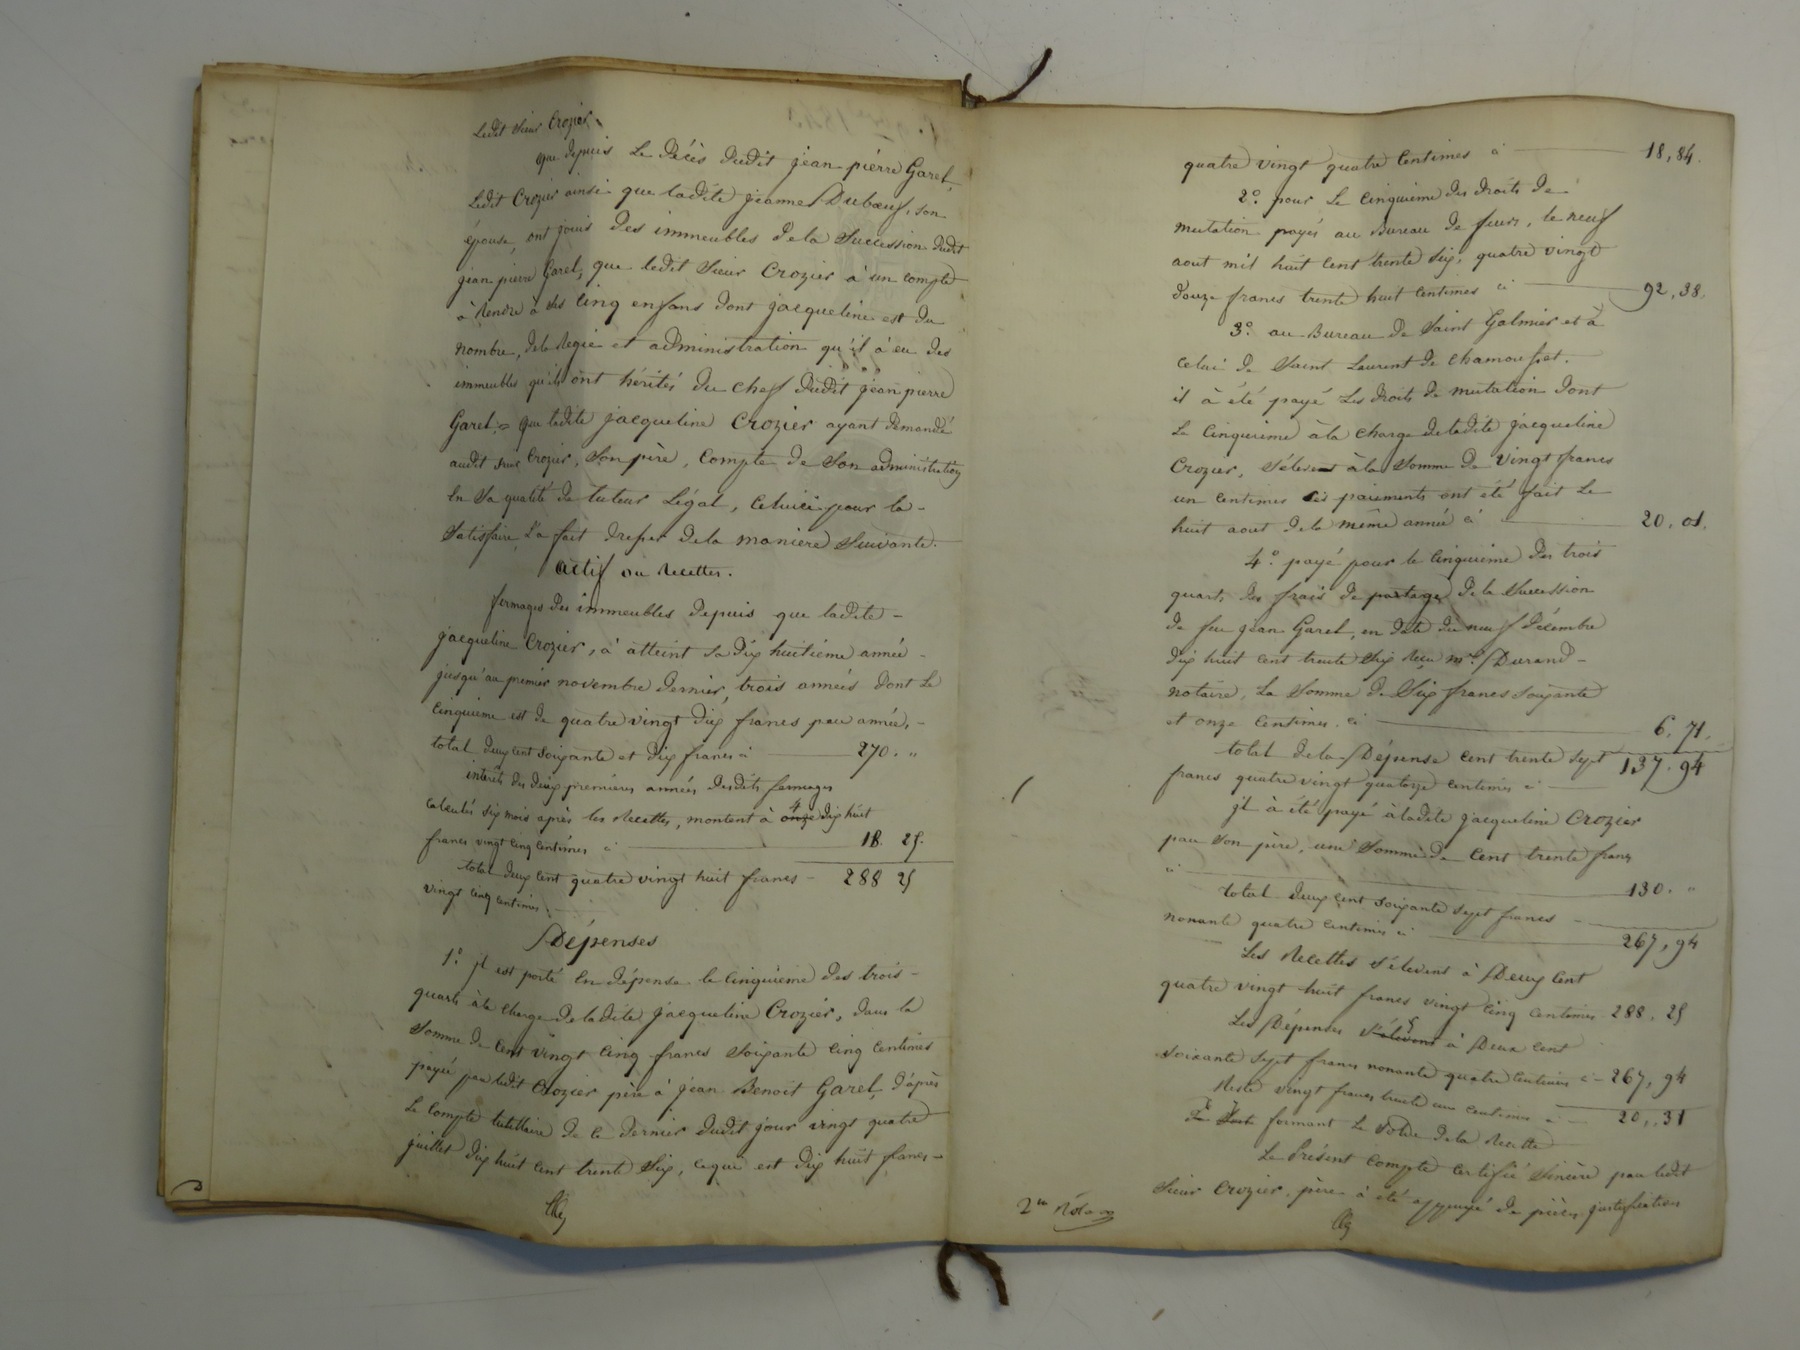 Ledit Sieur Crozier.
que depuis Le Décès dudit jean-pierre Garel,
Ledit Crozier ainsi que ladite jeanne Dubœuf, son
épouse, ont joui des immeubles de la Succession dudit
jean pierre Garel, que ledit Sieur Crozier à un compte
à Rendre à ses Cinq enfans dont jacqueline est du
nombre, de la Regie et administration qu'il à eu des
immeubles qu'ils ont hérités du chef dudit jean pierre
Garel = que ladite jacqueline Crozier ayant demandé
audit Sieur Crozier, Son père, Compte de Son administration
En Sa qualité de tuteur Légal, Celuici pour la -
Satisfaire L'a fait dresser de la maniere Suivante.
actif ou Recettes.
fermages des immeubles depuis que ladite -
jacqueline Crozier, à atteint sa dix huitième année -
jusqu'au premier novembre dernier, trois années dont Le
Cinquieme est de quatre vingt dix francs par année, -
total deux cent soixante et dix francs ci 270. "
intérêts des deux premieres années desdits fermages
calculés six mois après les Recettes, montent à onze dix huit
francs vingt cinq centimes ci 18. 25.
total deux cent quatre vingt huit francs - 288 25
vingt cinq centimes
Dépenses
1.° jl est porté En dépense le cinquième des trois -
quarts à la charge de ladite jacqueline Crozier, dans la
Somme de cent vingt cinq francs Soixante cinq centimes
payée par ledit Crozier père à jean Benoit Garel, d'après
Le Compte tutellaire de ce dernier dudit jour vingt quatre
juillet dix huit cent trente Six, ce qui est dix huit francs -
quatre vingt quatre Centimes ci 18, 84.
2.° pour Le Cinquieme des droits de
mutation payés au Bureau de feurs, le neuf
aout mil huit cent trente six, quatre vingt
douze francs trente huit Centimes ci 92, 38.
3.° au Bureau de Saint Galmier et à
Celui de Saint Laurent de chamousset.
il à été payé Les droits de mutation dont
Le Cinquieme à la charge de ladite jacqueline
Crozier, S'élevent à la Somme de vingt francs
un centimes ces paiements ont été fait Le
huit aout de la même année ci 20, 01.
4.° payé pour le cinquieme des trois
quarts des frais de partage de la Succession
de feu jean Garel, en date du neuf décembre
dix huit cent trente Six Reçu me. Durand -
notaire, La Somme de Six francs soixante
et onze Centimes. ci 6. 71.
total de la Dépense cent trente sept 137. 94
francs quatre vingt quatorze centimes ci
jl à été payé à ladite jacqueline Crozier
par Son père, une Somme de Cent trente francs
ci 130. "
total deux cent soixante sept francs -
nonante quatre centimes ci 267, 94
Les Recettes S'élevent à Deux Cent
quatre vingt huit francs vingt cinq centimes 288, 25
Les Dépenses S'élevent à Deux Cent
Soixante sept francs nonante quatre centimes ci - 267, 94
Reste vingt francs trente un centimes ci - 20,, 31
formant Le Solde de la Recette
Le Présent Compte Certifié Sincère par ledit
Sieur Crozier père à été appuyé de pièces justificatives
2me Rôle